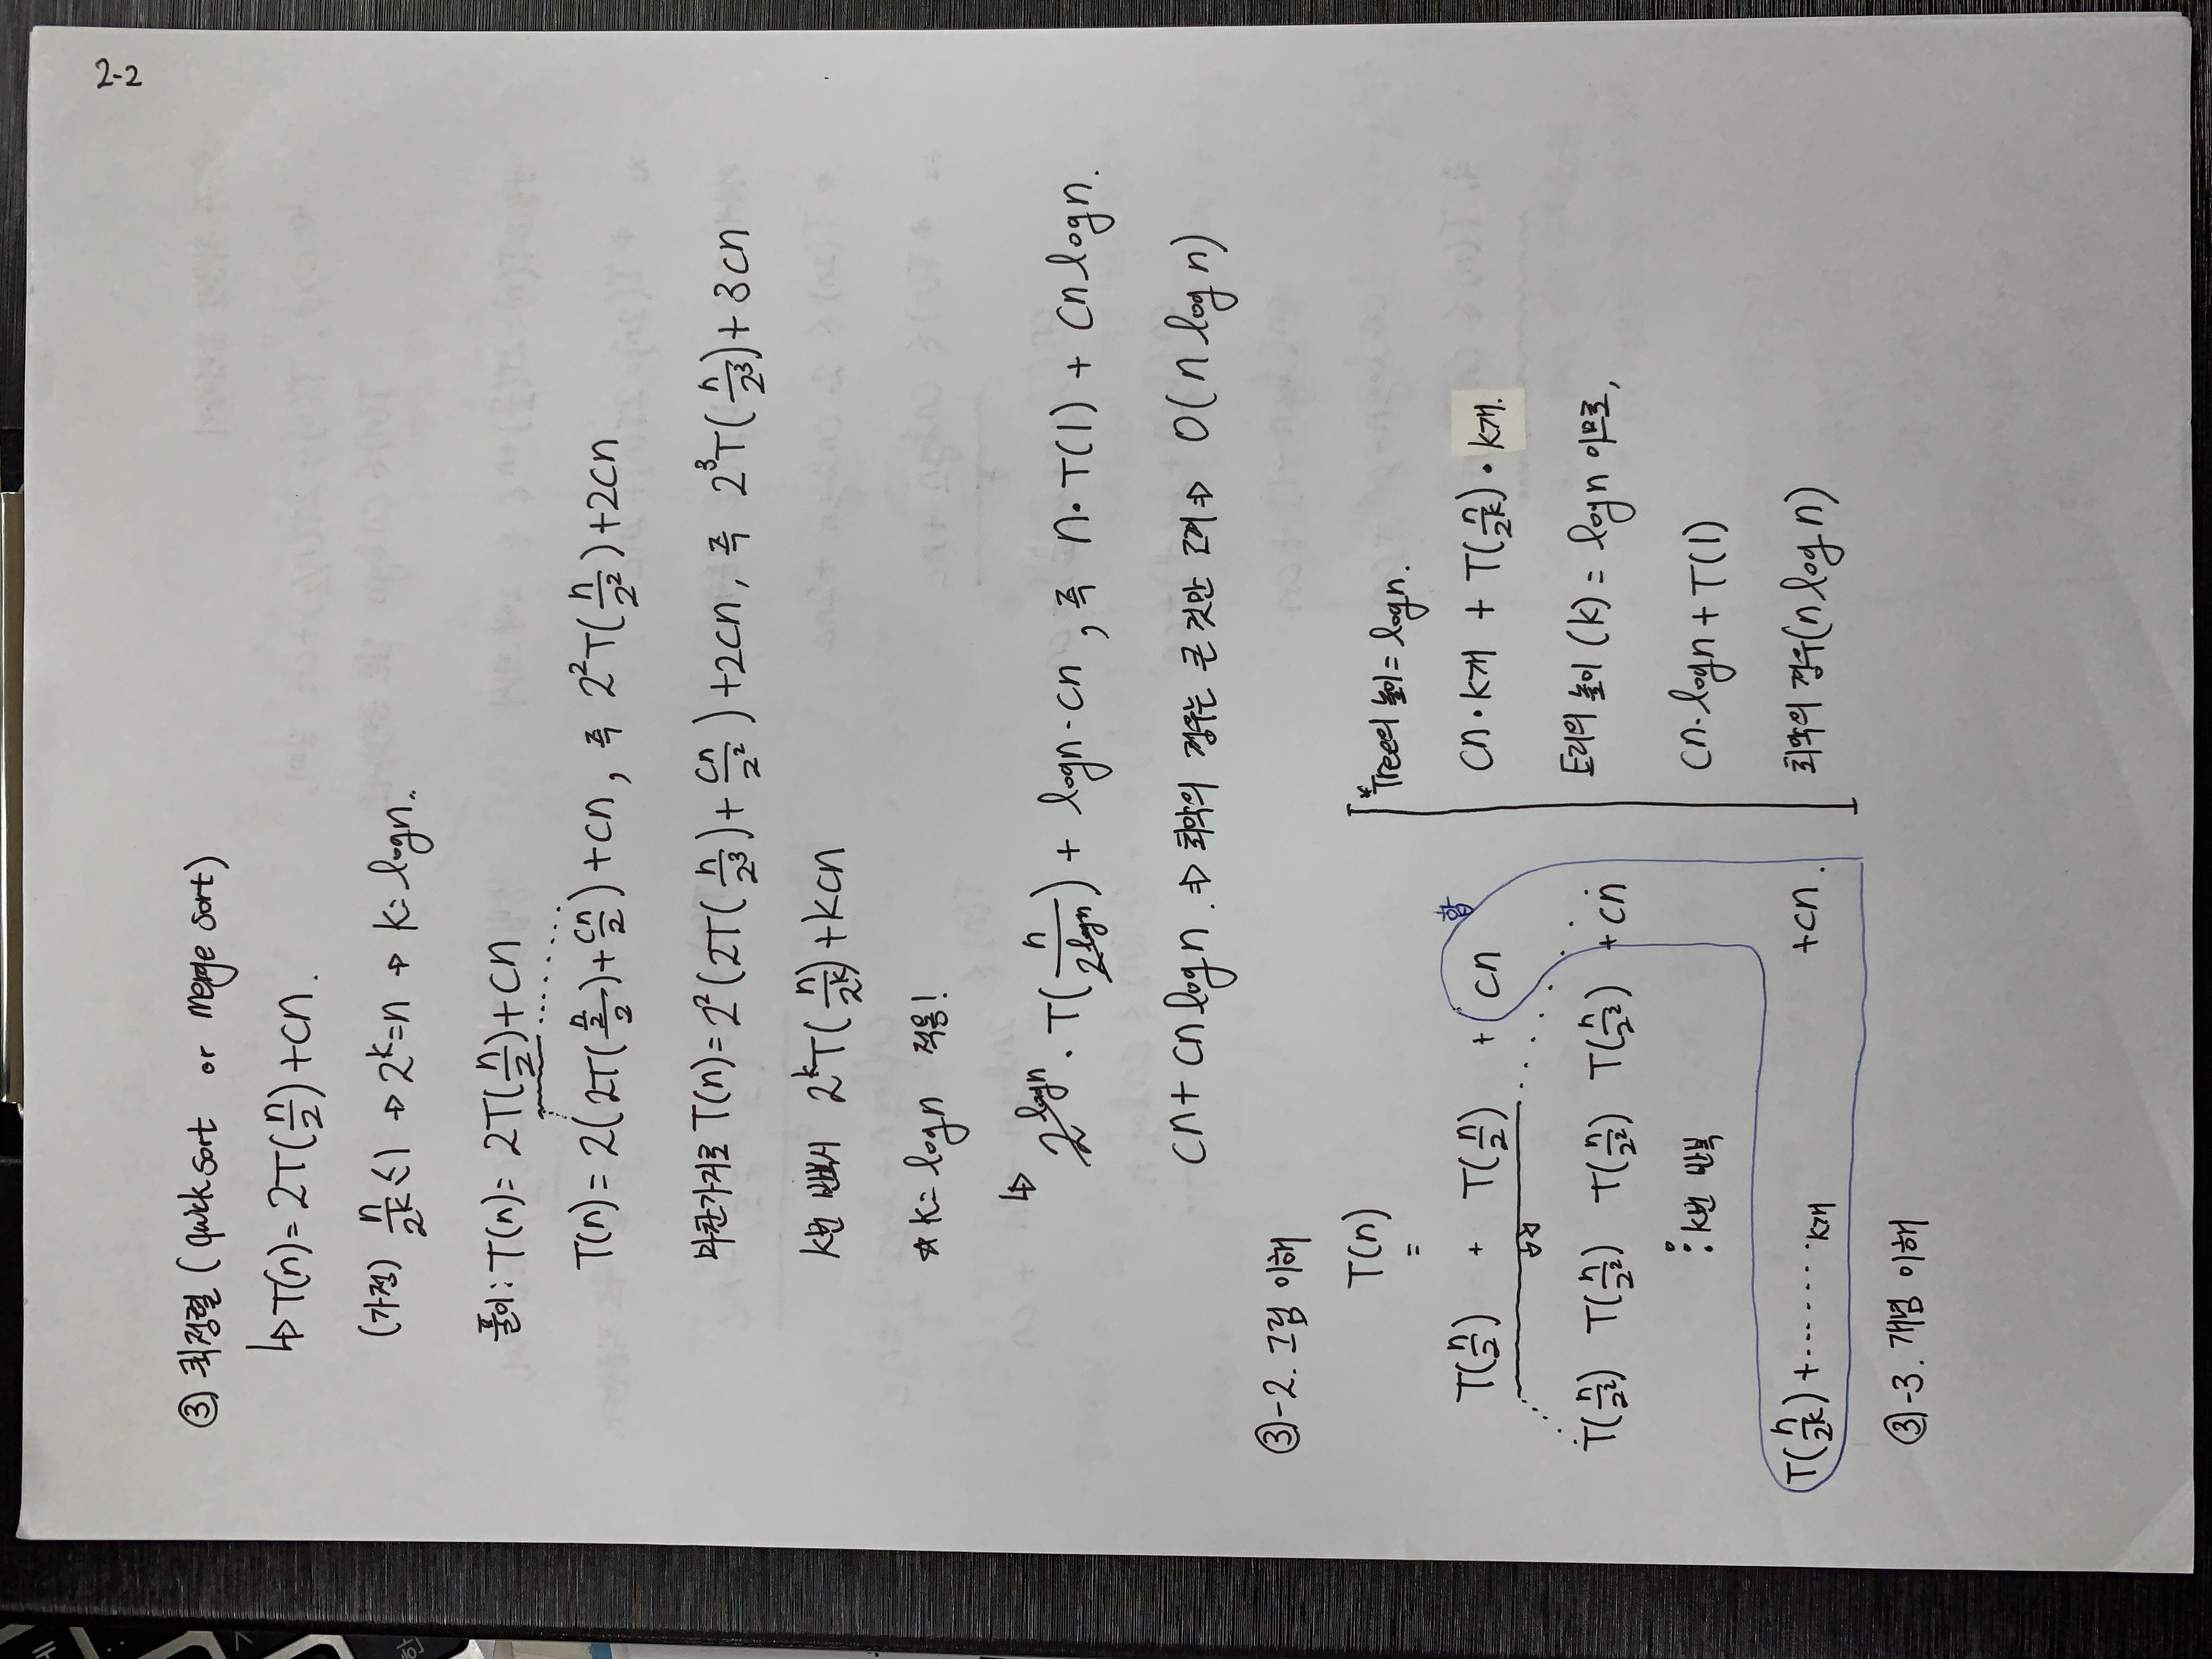 2-2
③ 퀵정렬 (quick sort or merge sort)
↳ T(n) = 2T(n/2) + cn.
(가정) n/2^k ≤ 1 → 2^k = n → k = logn..
풀이: T(n) = 2T(n/2) + cn
T(n) = 2(2T((n/2)/2) + cn/2) + cn, 즉 2²T(n/2²) + 2cn
마찬가지로 T(n) = 2²(2T(n/2³) + cn/2²) + 2cn, 즉 2³T(n/2³) + 3cn
k번 반복시 2^kT(n/2^k) + kcn
☆ k = logn 적용!
↳ 2^logn · T(n/2^logn) + logn · cn, 즉 n · T(1) + cn logn.
cn + cn logn. ⇒ 최악의 경우는 큰 것만 고려 ⇒ O(n log n)
③-2. 그림 이해
T(n)
=
T(n/2) + T(n/2) + cn
합
T(n/2²) T(n/2²) T(n/2²) T(n/2²) + cn
⋮ k번 반복
T(n/2^k) + ........ k개 + cn.
*Tree의 높이 = logn.
cn · k개 + T(n/2^k) · k개.
트리의 높이 (k) = logn 이므로,
cn · logn + T(1)
최악의 경우(n log n)
③-3. 개념 이해